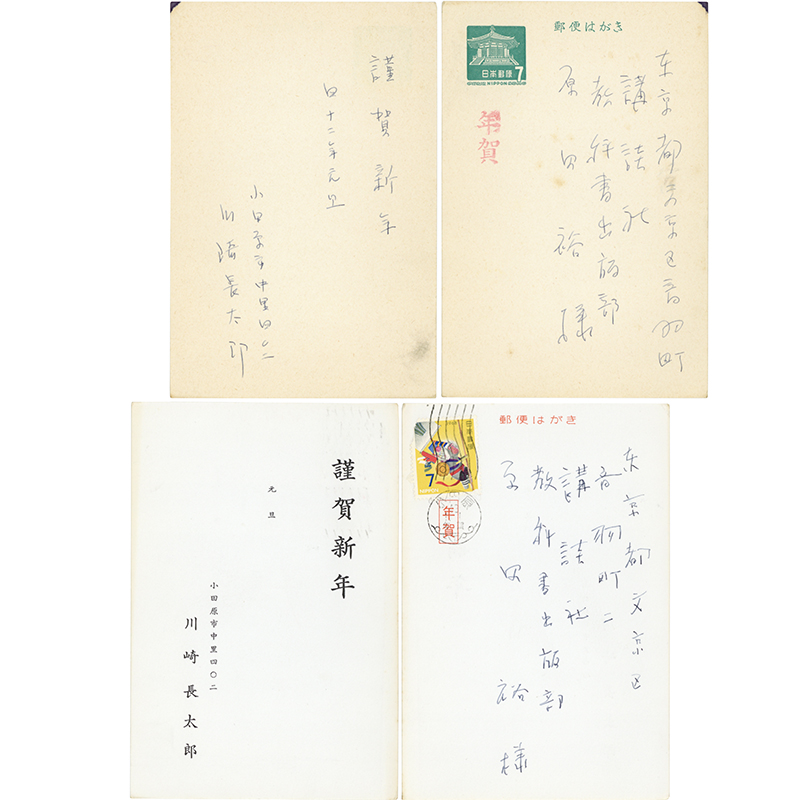 謹賀新年
四十二年元旦
小田原市中里四〇二
川崎長太郎
郵便はがき
日本郵便
7
NIPPON
年賀
東京都文京区音羽町
講談社
教科書出版部
原田裕様
謹賀新年
元旦
小田原市中里四〇二
川崎長太郎
郵便はがき
日本郵便
7
年賀
東京都文京区
音羽町二
講談社
教科書出版部
原田裕様